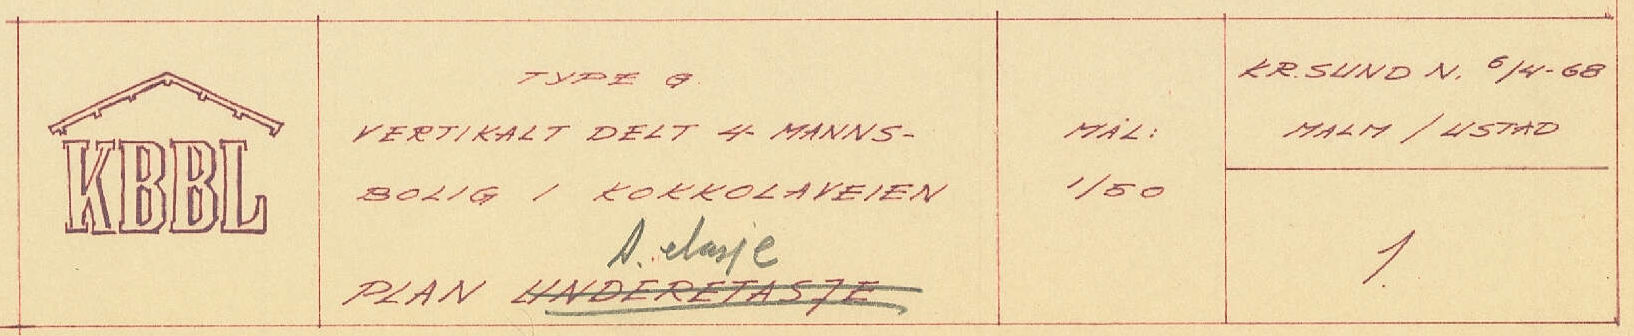 KBBL
TYPE G.
VERTIKALT DELT 4-MANNS-
BOLIG I KOKKOLAVEIEN
1. etasje
PLAN UNDERETASJE
MÅL:
1/50
KR.SUND N. 6/4-68
MALM / USTAD
1.